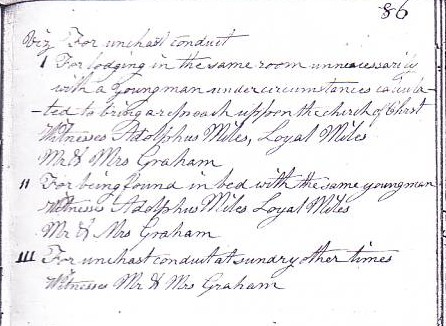 86
Viz For unchast conduct
I For lodging in the same room unnecessarily
with a young man under circumstances calcula-
-ted to bring a reproach uppon the church of Christ
Witnesses Adolphus Miles, Loyal Miles
Mr & Mrs Graham
II For being found in bed with the same young man
Witnesses Adolphus Miles Loyal Miles
Mr & Mrs Graham
III For unchast conduct at sundry other times
Witnesses Mr & Mrs Graham